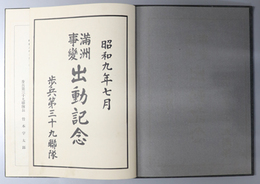 昭和九年七月
満洲
事変
出動記念
歩兵第三十九聯隊